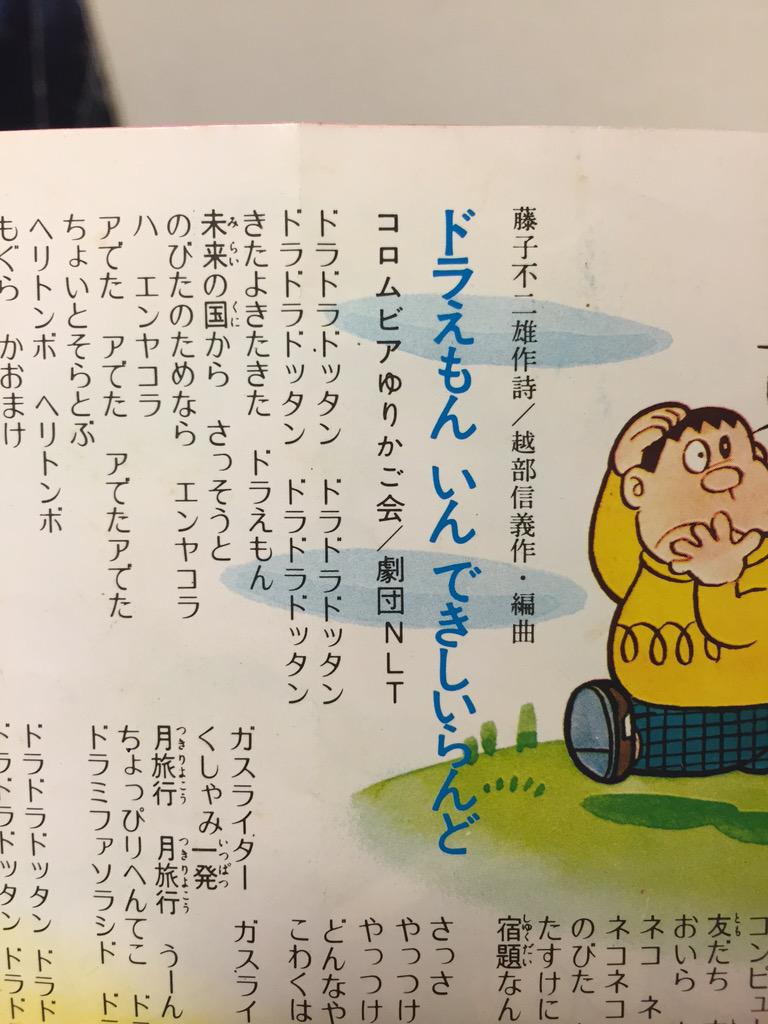 藤子不二雄作詩／越部信義作・編曲
ドラえもん いんできしいらんど
コロムビアゆりかご会／劇団NLT
ドラドラドッタン　ドラドラドッタン
ドラドラドッタン　ドラドラドッタン
きたよきたきた　ドラえもん
未来の国から　さっそうと
のびたのためなら　エンヤコラ
ハ　エンヤコラ
アてた　アてた　アてたアてた
ちょいとそらとぶ
ヘリトンボ　ヘリトンボ
もぐら　かおまけ
ガスライター　ガスライ
くしゃみ一発
月旅行　月旅行　うーん
ちょっぴりへんてこ　ド
ドラミファソラシド　ド
ドラドラドッタン　ドラド
ドラドラドッタン　ドラド
コンピュ
友だち
おいら
ネコ　ネ
ネコネコ
のびた
たすけに
宿題なん
さっさ
やっつけ
やっつけ
どんなや
こわくは